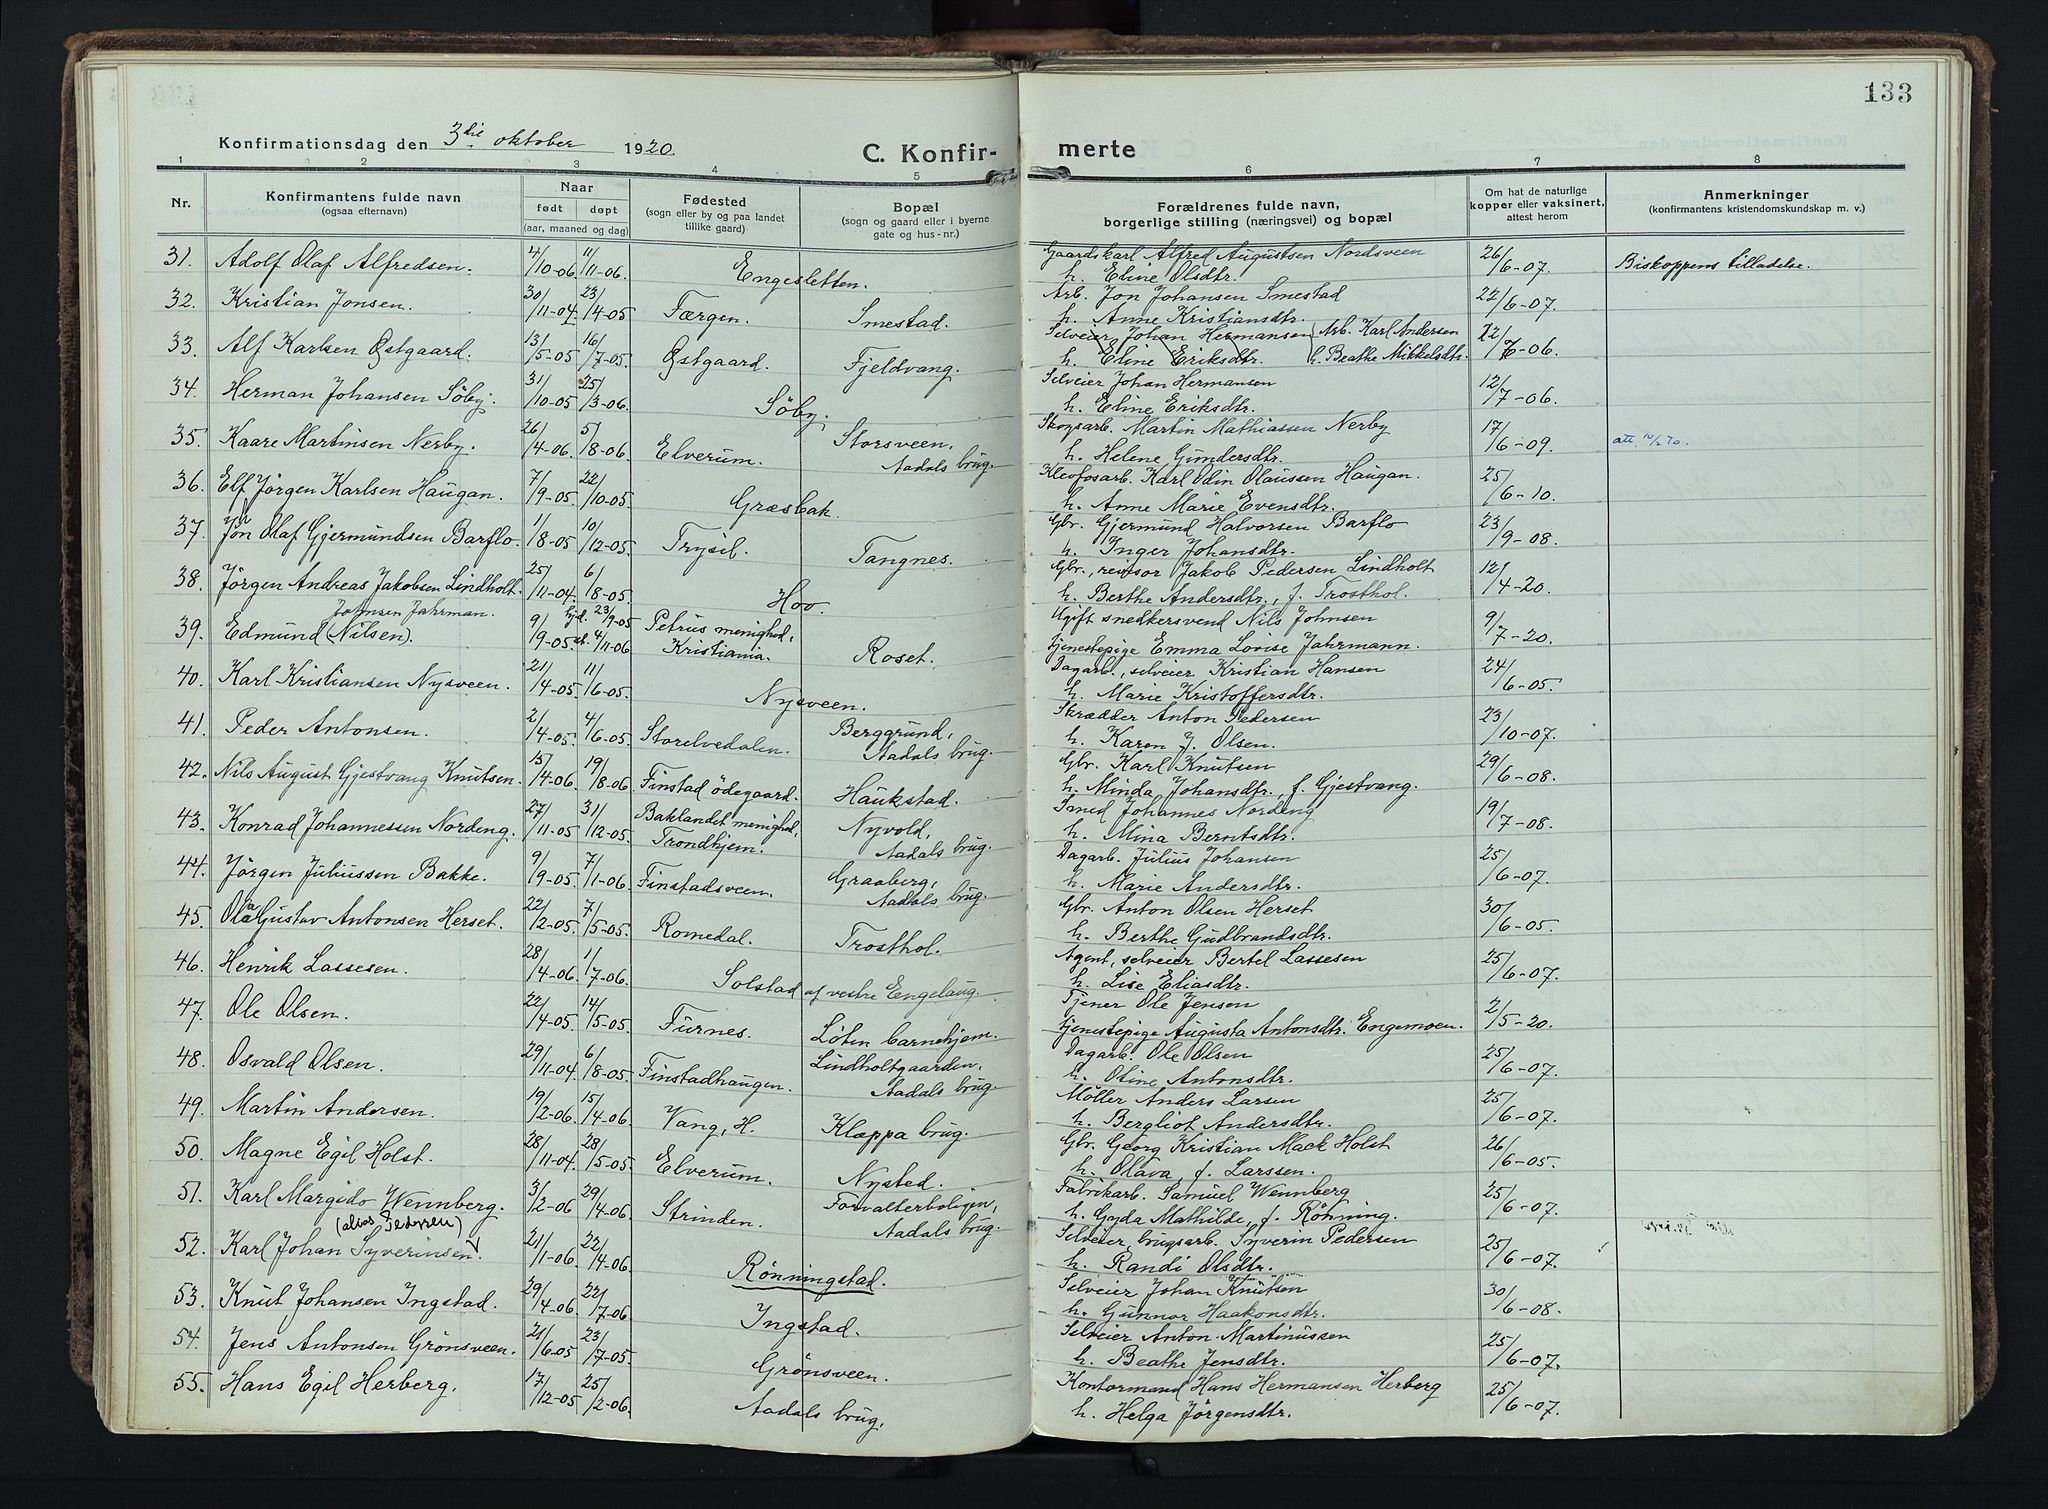 133
Konfirmationsdag den 3die oktober 1920.
C. Konfir-merte
1 2 3 4 5 6 7 8
Nr. Konfirmantens fulde navn (ogsaa efternavn) Naar født døpt (aar, maaned og dag) Fødested (sogn eller by og paa landet tillike gaard) Bopæl (sogn og gaard eller i byerne gate og hus-nr.) Forældrenes fulde navn, borgerlige stilling (næringsvei) og bopæl Om hat de naturlige kopper eller vaksinert, attest herom Anmerkninger (konfirmantens kristendomskundskap m. v.)
31. Adolf Olaf Alfredsen. 4/10-06 11/11-06. Engesletten. Gaardskarl Alfred Augustsen Nordsveen 26/6-07. Biskoppens tilladelse.
h. Eline Olsdtr.
32. Kristian Jonsen. 30/11-04 23/4-05 Færgen. Smestad. Arb. Jon Johansen Smestad 22/6-07.
h. Anne Kristiansdtr.
33. Alf Karlsen Østgaard. 13/5-05 16/7-05. Østgaard. Fjeldvang. Selveier Johan Hermansen Arb. Karl Andersen 22/6-06.
h. Eline Eriksdtr. h. Beathe Mikkelsdtr.
34. Herman Johansen Söby. 31/10-05 25/3-06. Söby. Selveier Johan Hermansen 12/7-06.
h. Eline Eriksdtr.
35. Kaare Martinsen Nerby. 26/4-06. 5/8-06. Elverum. Storsveen, Aadals brug. Skogsarb. Martin Mathiassen Nerby 17/6-09. att. 10/2 70.
h. Helene Gundersdtr.
36. Elf Jörgen Karlsen Haugan. 7/9-05 22/10-05. Græsbak. Kleofosarb. Karl Odin Olaussen Haugan. 25/6-10.
h. Anne Marie Evensdtr.
37. Jon Olaf Gjermundsen Barflo. 1/8-05 10/12-05. Trysil. Tangnes. Gbr. Gjermund Halvorsen Barflo 23/9-08.
h. Inger Johansdtr.
38. Jörgen Andreas Jakobsen Lindholt. 25/11-04. 6/8-05. Hov. Gbr., revisor Jakob Pedersen Lindholt 12/4-20.
h. Berthe Andersdtr., f. Trosthol.
Johnsen Jahrman.
39. Edmund (Nilsen). 9/9-05. hjd. 23/9-05 st. 4/11-06 Petrus menighed, Kristiania. Roset. Ugift snedkersvend Nils Johnsen 9/7-20.
tjenestepige Emma Lovise Jahrmann.
40. Karl Kristiansen Nysveen. 21/4-05 11/6-05. Nysveen. Dagarb., selveier Kristian Hansen 24/6-05.
h. Marie Kristoffersdtr.
41. Peder Antonsen. 2/4-05. 4/6-05. Storelvedalen. Berggrund, Aadals brug. Skrædder Anton Pedersen 23/10-07.
h. Karen J. Olsen.
42. Nils August Gjestvang Knutsen. 15/4-06. 19/8-06 Finstad ödegaard. Haukstad. Gbr. Karl Knutsen 29/6-08.
h. Minda Johansdtr., f. Gjestvang.
43. Konrad Johannessen Nordeng. 27/11-05 31/12-05. Baklandet menighed, Trondhjem. Nyvold, Aadals brug. Smed Johannes Nordeng 19/7-08.
h. Mina Berntsdtr.
44. Jörgen Juliussen Bakke. 9/9-05 7/1-06. Finstadsveen. Graaberg, Aadals brug. Dagarb. Julius Johansen 25/6-07.
h. Marie Andersdtr.
45. Ola Gustav Antonsen Herset. 22/2-05. 7/5-05. Romedal. Trosthol. Gbr. Anton Olsen Herset 30/6-05.
h. Berthe Gudbrandsdtr.
46. Henrik Lassesen. 28/4-06. 1/7-06. Solstad af vestre Engelaug. Agent, selveier Bertel Lassesen 25/6-07.
h. Lise Eliasdtr.
47. Ole Olsen. 22/4-05. 14/5-05. Furnes. Løten barnehjem. Tjener Ole Jensen 2/5-20.
tjenestepige Augusta Antonsdtr. Engemoen.
48. Osvald Olsen. 29/11-04. 6/8-05. Finstadhaugen. Lindholtgaarden, Aadals brug. Dagarb. Ole Olsen 25/6-07.
h. Otine Antonsdtr.
49. Martin Andersen. 19/2-06. 15/4-06. Vang, H. Klæppa brug. Möller Anders Larsen 25/6-07.
h. Bergliot Andersdtr.
50. Magne Egil Holst. 28/11-04. 28/5-05. Elverum. Nysted. Gbr. Georg Kristian Mack Holst 26/6-05.
h. Olava, f. Larssen.
51. Karl Margido Wennberg. 3/2-06 29/4-06. Strinden. Forvalterboligen, Aadals brug. Fabrikarb. Samuel Wennberg 25/6-07.
h. Gyda Mathilde, f. Rønning.
(alias Pedersen)
52. Karl Johan Syverinsen. 21/1-06. 22/4-06. Rønningstad. Selveier, brugsarb. Syverin Pedersen 25/6-07.
h. Randi Olsdtr.
53. Knut Johansen Ingstad. 29/4-06. 22/7-06. Ingstad. Selveier Johan Knutsen 30/6-08.
h. Gunnor Haakonsdtr.
54. Jens Antonsen Grönsveen. 21/6-05 23/7-05. Grönsveen. Selveier Anton Martinussen 25/6-07.
h. Beathe Jensdtr.
55. Hans Egil Herberg. 17/12-05 25/2-06. Aadals brug. Kontormand Hans Hermansen Herberg 25/6-07.
h. Helga Jörgensdtr.